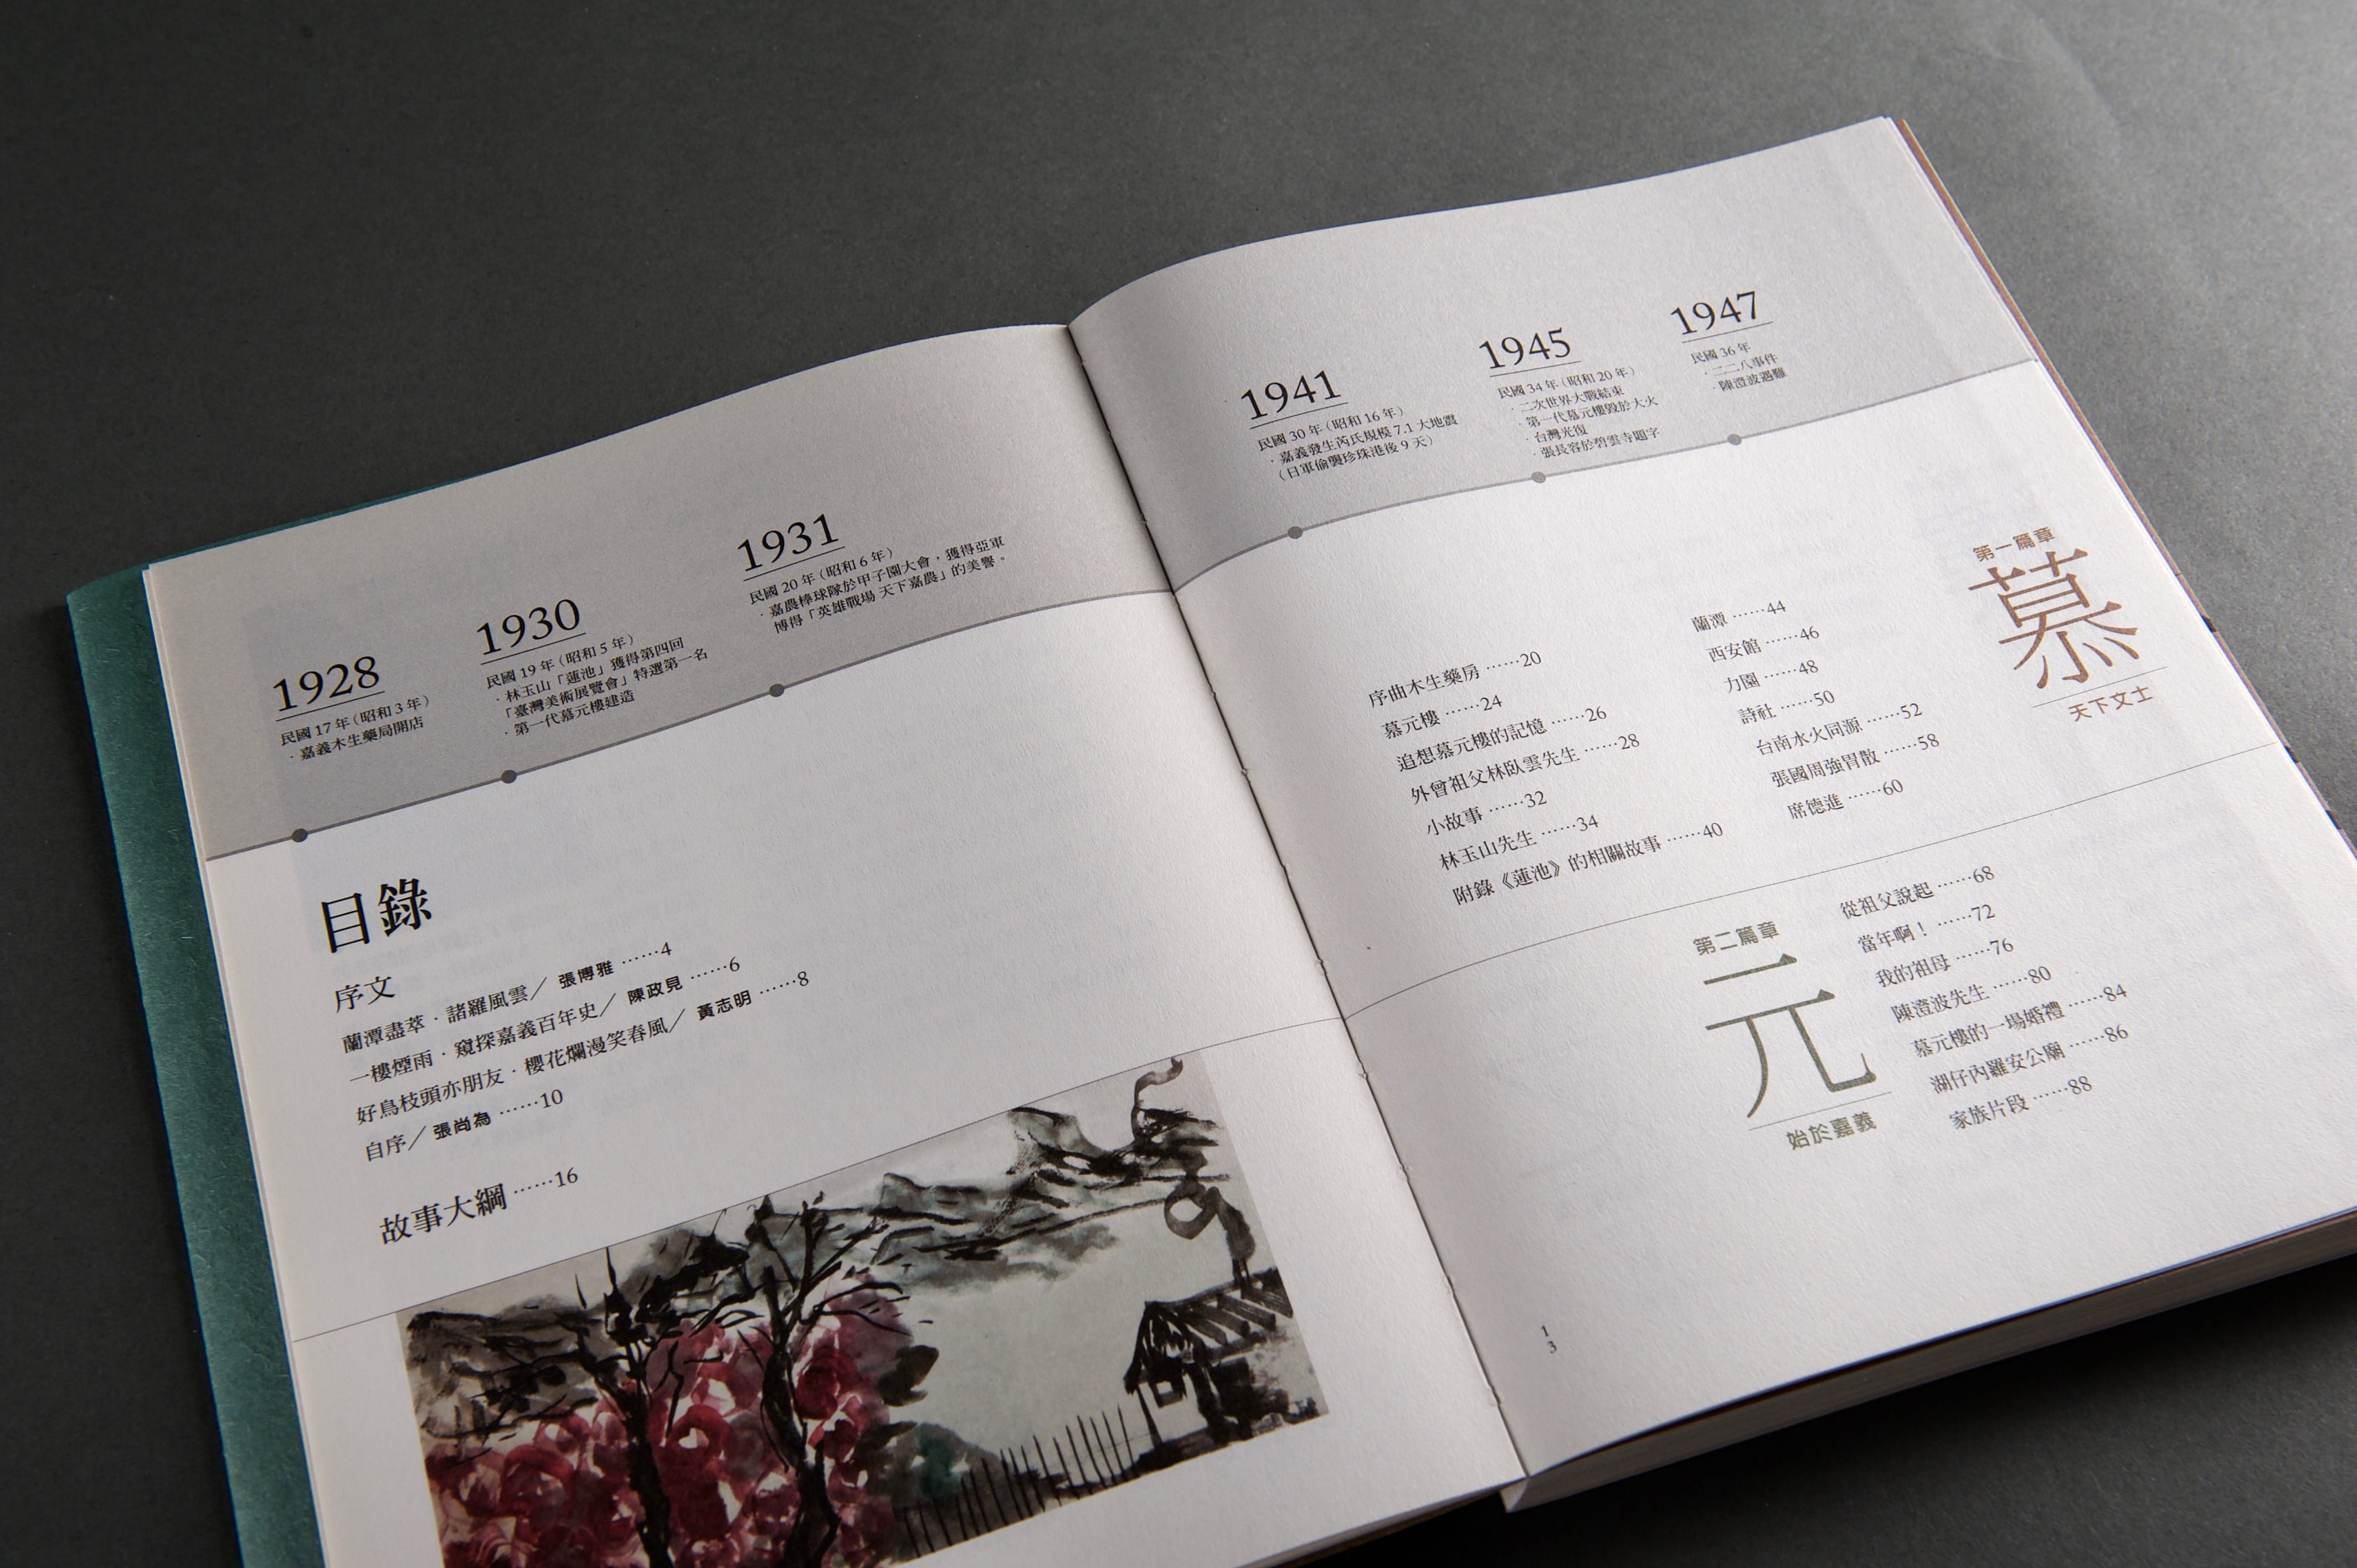 1928
民國 17 年（昭和 3 年）
·嘉義木生藥局開店
1930
民國 19 年（昭和 5 年）
·林玉山「蓮池」獲得第四回
「臺灣美術展覽會」特選第一名
·第一代慕元樓建造
1931
民國 20 年（昭和 6 年）
·嘉農棒球隊於甲子園大會，獲得亞軍
博得「英雄戰場 天下嘉農」的美譽。
目錄
序文
蘭潭盡萃·諸羅風雲／張博雅 ……4
一樓煙雨·窺探嘉義百年史／陳政見 ……6
好鳥枝頭亦朋友·櫻花爛漫笑春風／黃志明 ……8
自序／張尚為 ……10
故事大綱 ……16
1941
民國 30 年（昭和 16 年）
·嘉義發生芮氏規模 7.1 大地震
（日軍偷襲珍珠港後 9 天）
1945
民國 34 年（昭和 20 年）
·二次世界大戰結束
·第一代慕元樓毀於大火
·台灣光復
·張長容於碧雲寺題字
1947
民國 36 年
·二二八事件
·陳澄波遇難
第一篇章
慕
天下文士
序曲木生藥房 ……20
慕元樓 ……24
追想慕元樓的記憶 ……26
外曾祖父林臥雲先生 ……28
小故事 ……32
林玉山先生 ……34
附錄《蓮池》的相關故事 ……40
蘭潭 ……44
西安館 ……46
力園 ……48
詩社 ……50
台南水火同源 ……52
張國周強胃散 ……58
席德進 ……60
第二篇章
元
始於嘉義
從祖父說起 ……68
當年啊！ ……72
我的祖母 ……76
陳澄波先生 ……80
慕元樓的一場婚禮 ……84
湖仔內羅安公廟 ……86
家族片段 ……88
13